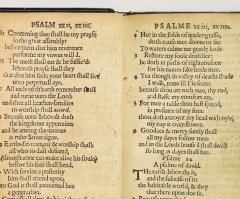 PSALM XXII, XXIII.
Concerning thee shall be my prayse
in the great assembly:
before them that him reverence
performe my vowes will I.
The meek shall eat & be suffic'd;
Jehovah prayse shall they
that doe him seek: your heart shall live
unto perpetuall aye.
All ends of th'earth remember shall
and turne unto the Lord:
and thee all heathen-families
to worship shall accord.
Because unto Jehovah doth
the kingdome appertaine:
and he among the nations
is ruler Soveraigne.
Earths-fat-ones, eat & worship shall:
all who to dust descend,
(though none can make alive his soule)
before his face shall bend.
With service a posterity
him shall attend upon;
to God it shall accounted bee
a generation.
PSALME XXIII, XXIIII.
Hee in the folds of tender-grasse,
doth cause mee downe to lie:
To waters calme me gently leads
Restore my soule doth hee:
he doth in paths of righteousnes:
for his names sake leade mee.
Yea though in valley of deaths shade
I walk, none ill I'le feare:
because thou art with mee, thy rod,
and staffe my comfort are.
For mee a table thou hast spread,
in presence of my foes:
thou dost annoynt my head with oyle,
my cup it over-flowes.
Goodnes & mercy surely shall
all my dayes follow mee:
and in the Lords house I shall dwell
so long as dayes shall bee.
Psalme 24
A psalme of david.
The earth Jehovahs is,
and the fulnesse of it:
the habitable world, & they
that there upon doe sit.